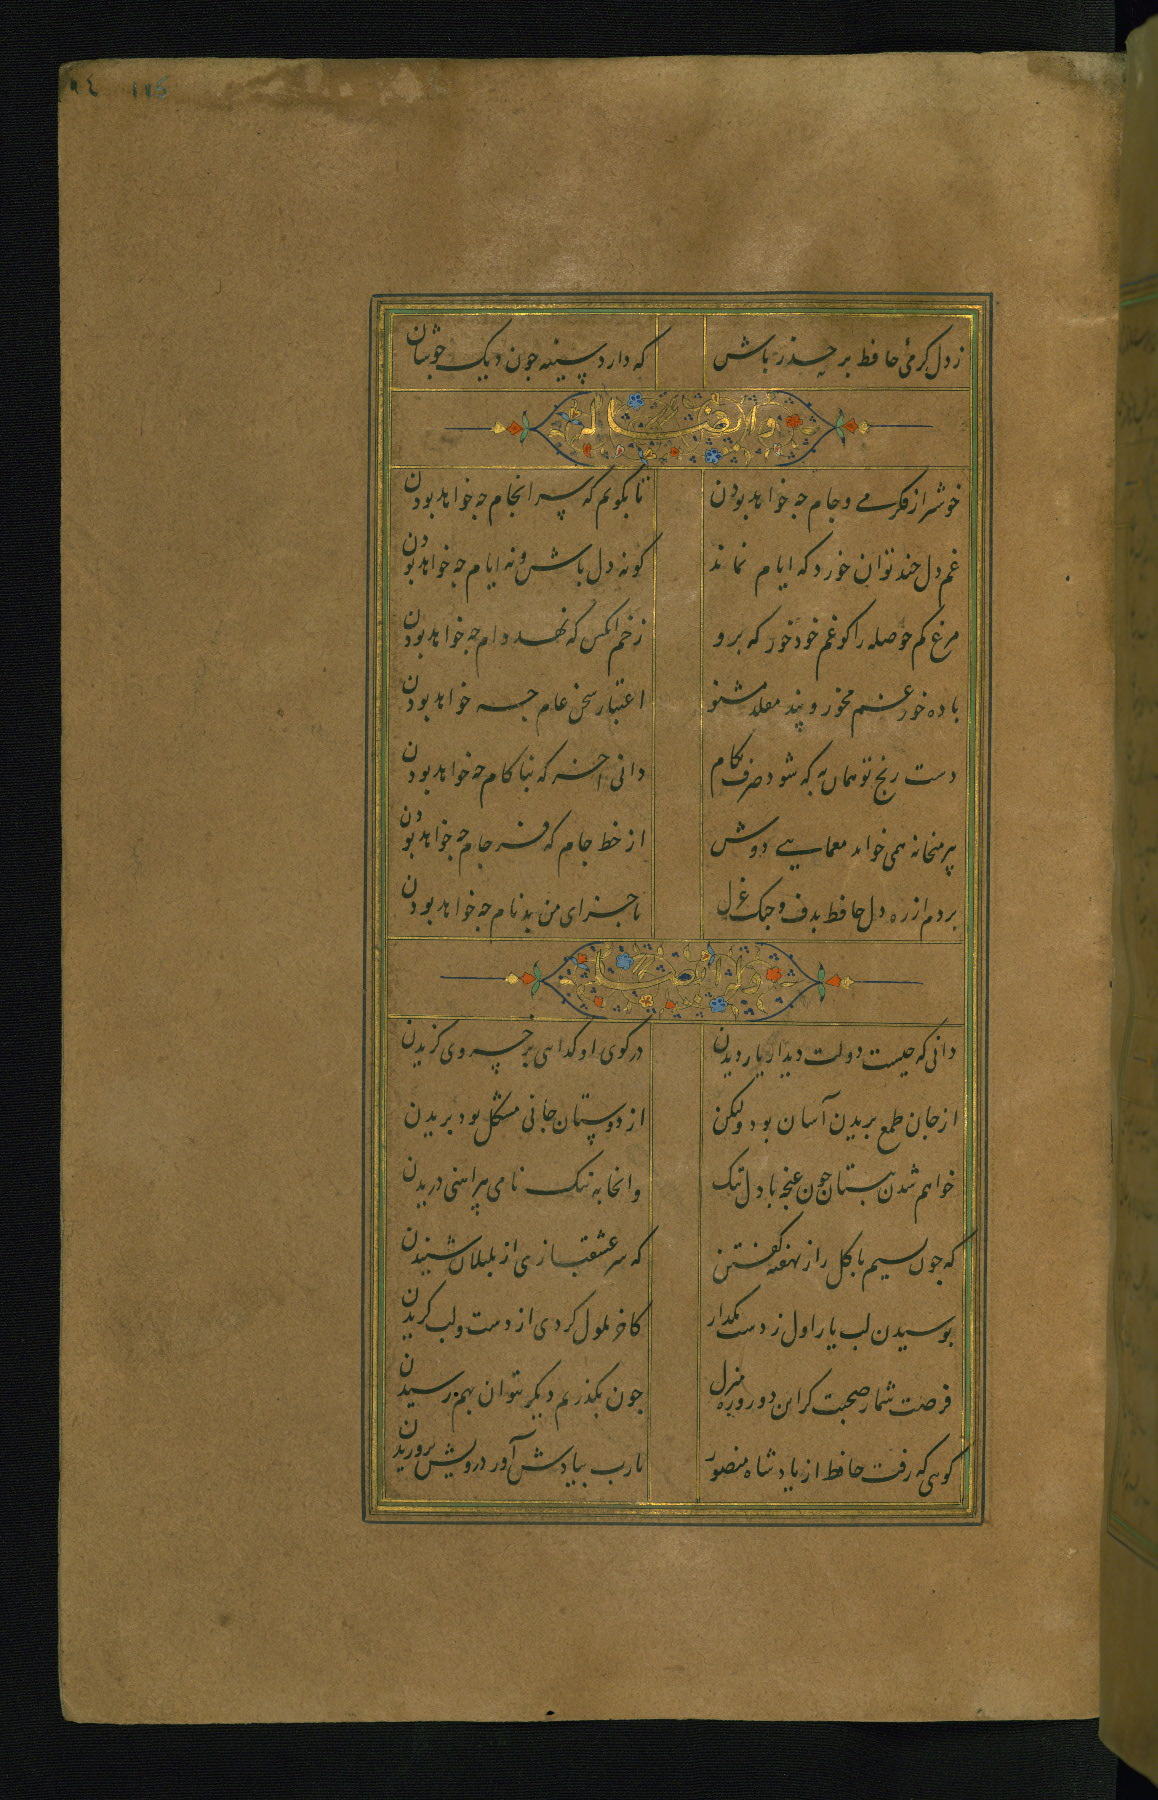 ز دل گرمی حافظ بر حذر باش که دارد سینه چون دیک جوشان
وایضا له
خوشتر از فکر می و جام چه خواهد بودن تا بگویم که سرانجام چه خواهد بودن
غم دل چند توان خورد که ایام نماند گو نه دل باش و نه ایام چه خواهد بودن
مرغ کم حوصله را گو غم خود خور که برو رحم آنکس که نهد دام چه خواهد بودن
باده خور غم مخور و پند مقلد مشنو اعتبار سخن عام چه خواهد بودن
دست رنج تو همان به که شود صرف بکام دانی آخر که بناکام چه خواهد بودن
پیر میخانه همی خواند معمایی دوش از خط جام که فرجام چه خواهد بودن
بردم از ره دل حافظ بدف و چنک و غزل تا جزای من بدنام چه خواهد بودن
وله ایضا
دانی که چیست دولت دیدار یار دیدن در کوی او گدایی بر خسروی گزیدن
از جان طمع بریدن آسان بود ولیکن از دوستان جانی مشکل بود بریدن
خواهم شدن ببستان چون غنچه با دل تنک وانجا به نیک نامی پیراهنی دریدن
که چون نسیم با گل راز نهفته گفتن که سر عشقبازی از بلبلان شنیدن
بوسیدن لب یار اول ز دست مگذار کاخر ملول گردی از دست و لب گزیدن
فرصت شمار صحبت کز این دو روزه منزل چون بگذریم دیگر نتوان بهم رسیدن
گویی که رفت حافظ از یاد شاه منصور یارب بیادش آور درویش پروریدن